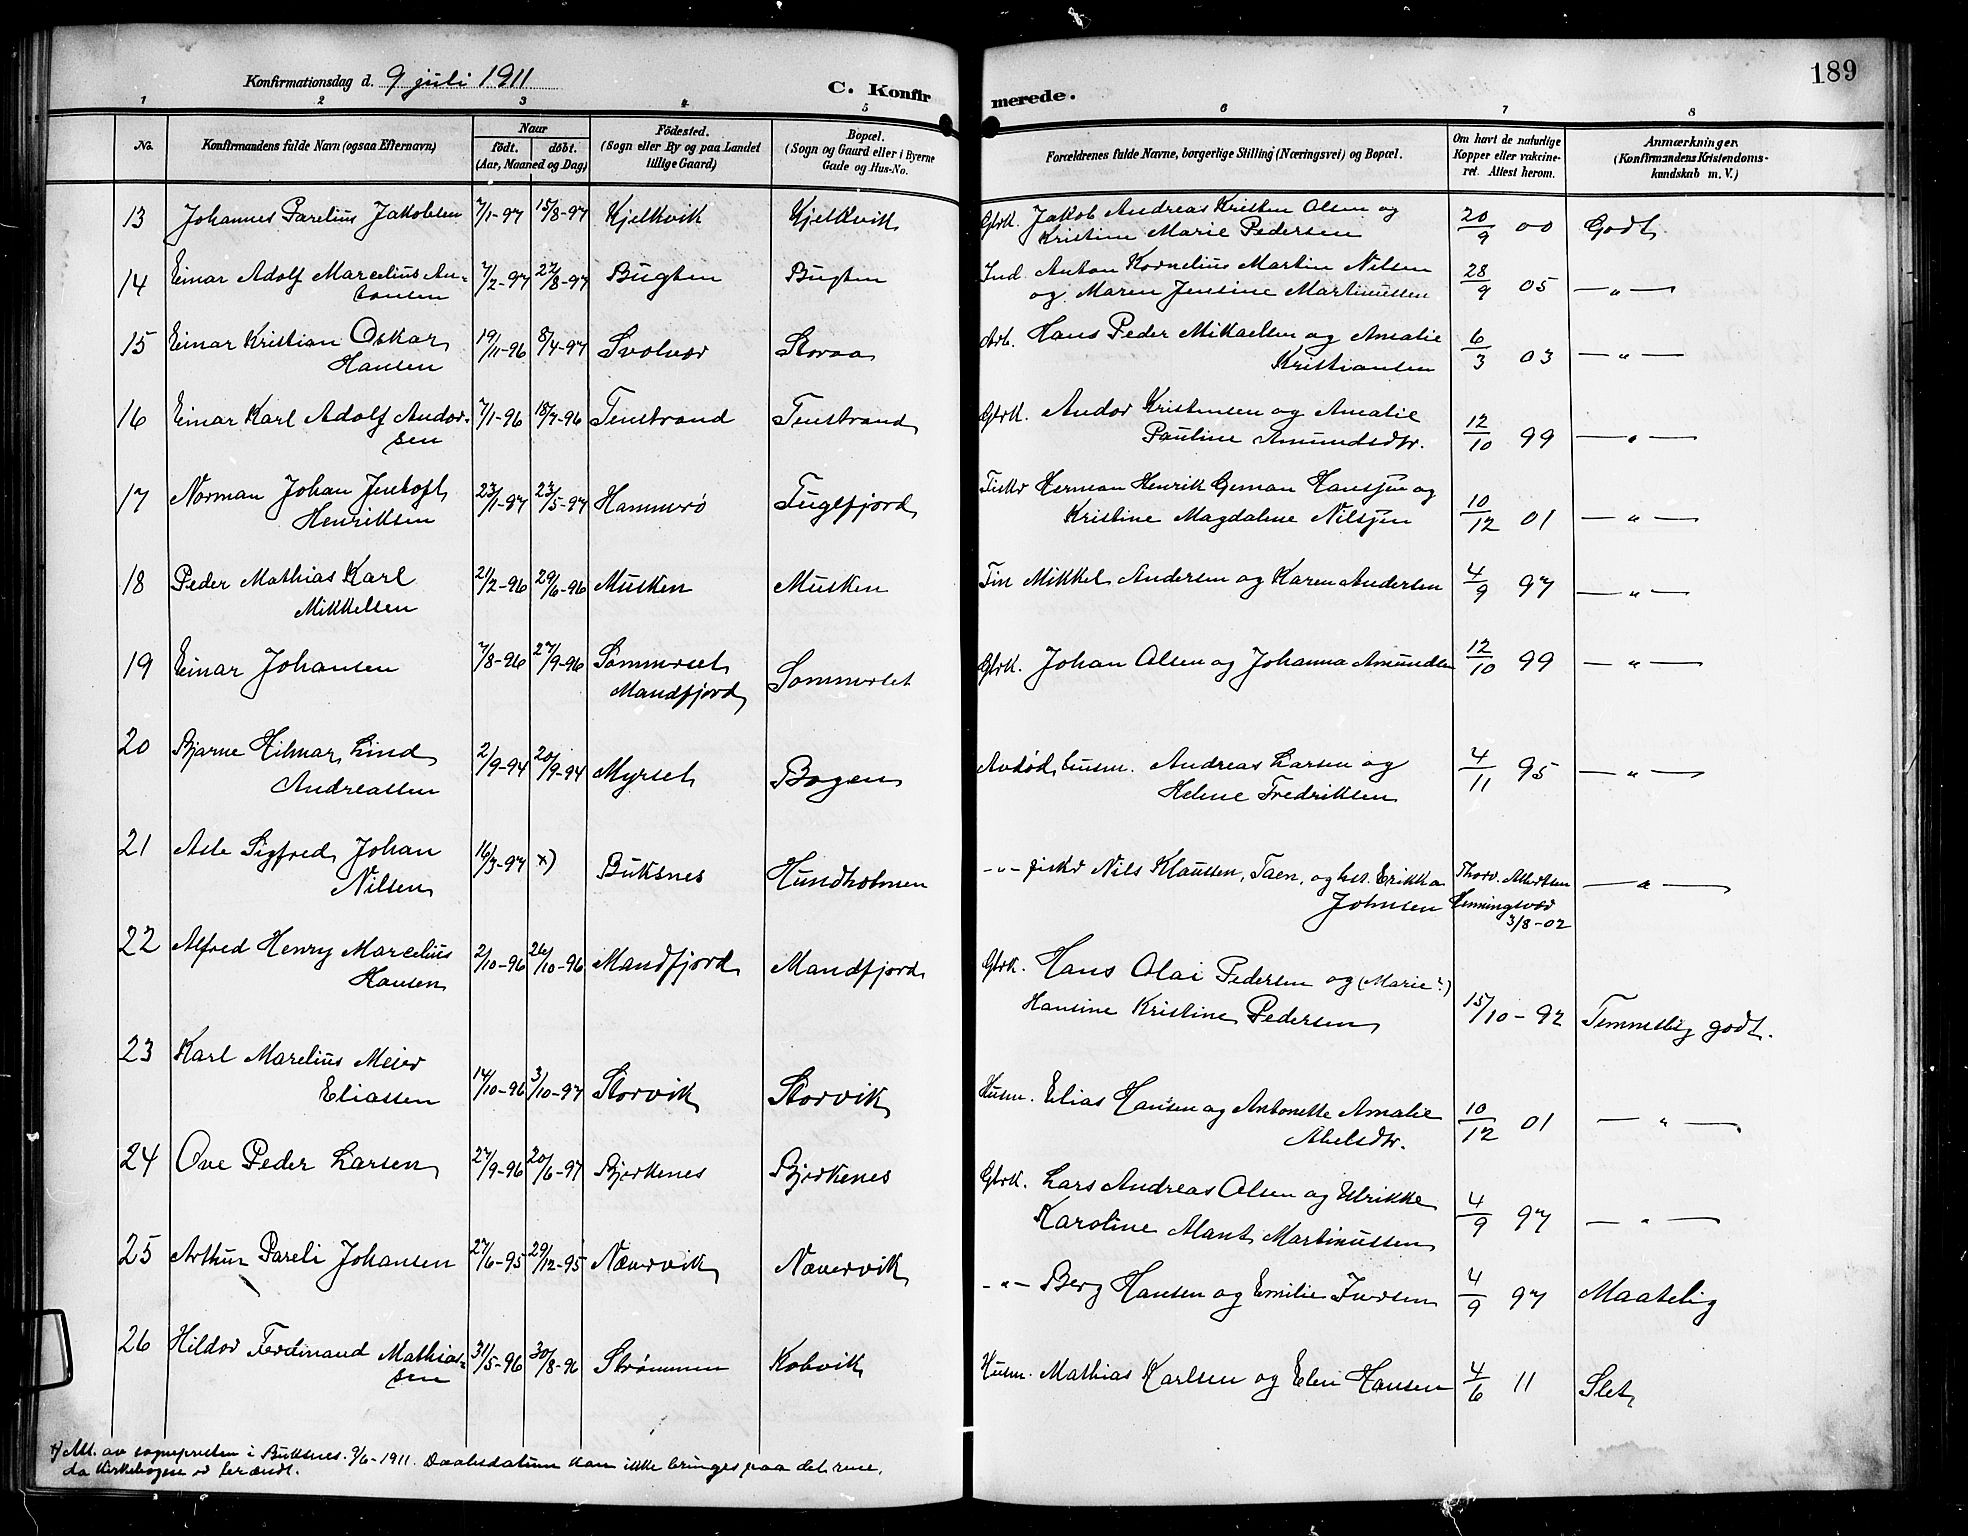 189
Konfirmationsdag d. 9 juli 1911
C. Konfirmerede.
1 2 3 4 5 6 7 8
No.
Konfirmandens fulde Navn (ogsaa Efternavn)
Naar
födt. döbt.
(Aar, Maaned og Dag)
Födested.
(Sogn eller By og paa Landet
tillige Gaard)
Bopæl.
(Sogn og Gaard eller i Byerne
Gade og Hus-No.
Forældrenes fulde Navne, borgerlige Stilling (Næringsvei) og Bopæl.
Om havt de naturlige
Kopper eller vakcine-
ret. Attest herom.
Anmærkninger.
(Konfirmandens Kristendoms-
kundskab m. V.)
13 Johannes Parelius Jakobsen 7/1-97 15/8-97 Kjelkvik Kjelkvik Gbrk. Jakob Andreas Kristen Olsen og
Kristine Marie Pedersen 20/9 00 Godt
14 Einar Adolf Marcelius An-
tonsen 7/2-97 22/8-97 Bugten Bugten Ind. Anton Kornelius Martin Nilsen
og Maren Jensine Martinussen 28/9 05 — „ —
15 Einar Kristian Oskar
Hansen 19/11-96 8/4-97 Svolvær Storaa Arb. Hans Peder Mikaelsen og Amalie
Kristiansen 6/3 03 — „ —
16 Einar Karl Adolf Andor-
sen 7/1-96 18/7-96 Tenstrand Tenstrand Gbrk. Andor Kristensen og Amalie
Pauline Amundsdtr. 12/10 99 — „ —
17 Norman Johan Jentoft
Henriksen 23/1-97 23/5-97 Hammerø Fuglfjord Fisker Herman Henrik German Hansen og
Kristine Magdalene Nilsen 10/12 01 — „ —
18 Peder Mathias Karl
Mikkelsen 21/2-96 29/6-96 Musken Musken Fin Mikkel Andersen og Karen Andersen 4/9 97 — „ —
19 Einar Johansen 7/8-96 27/9-96 Sommerset
Mandfjord Sommerset Gbrk. Johan Olsen og Johanna Amundsen 12/10 99 — „ —
20 Bjarne Hilmar Lind
Andreassen 2/9-94 20/9-94 Myrset Bogen Avdød husm. Andreas Larsen og
Helene Fredriksen 4/11 95 — „ —
21 Asle Sigfred Johan
Nilsen 16/3-97 x) Buksnes Hundholmen - „ - fisker Nils Klaussen, Taen, og hst. Erikka
Johnsen Thorv. Albertsen
Henningsvær
3/8-02 — „ —
22 Alfred Henry Marcelius
Hansen 2/10-96 26/10-96 Mandfjord Mandfjord Gbrk. Hans Olai Pedersen og (Marie?)
Hansine Kristine Pedersen 15/10-92 Temmelig godt.
23 Karl Marelius Meier
Eliassen 14/10-96 3/10-97 Storvik Storvik Husm. Elias Hansen og Antonette Amalie
Abelsdtr. 10/12 01 — „ —
24 Ove Peder Larsen 27/9-96 20/6-97 Bjerkenes Bjerkenes Gbrk. Lars Andreas Olsen og Ulrikke
Karoline Martinussen 4/9 97 — „ —
25 Arthur Pareli Johansen 27/6-95 29/12-95 Nævervik Nævervik - „ - Berg Hansen og Emilie Iversen 4/9 97 Maatelig
26 Hildor Ferdinand Mathias-
sen 31/5-96 30/8-96 Strømmen Kobvik Husm. Mathias Karlsen og Elen Hansen 4/6 11 Slet
x) Att. av sogneprsten i Buksnes. 9/6-1911. Daabsdatum kan ikke bringes paa det rene,
da Kirkebogen er